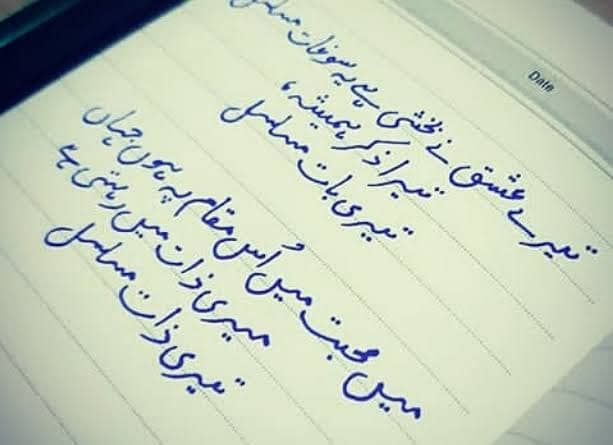 Date
تیرے عشق نے بخشی ہے یہ سوغات مسلسل
تیرا ذکر ہمیشہ،
تیری بات مسلسل
میں محبت میں اُس مقام پہ ہوں جہاں
میری ذات میں رہتی ہے
تیری ذات مسلسل